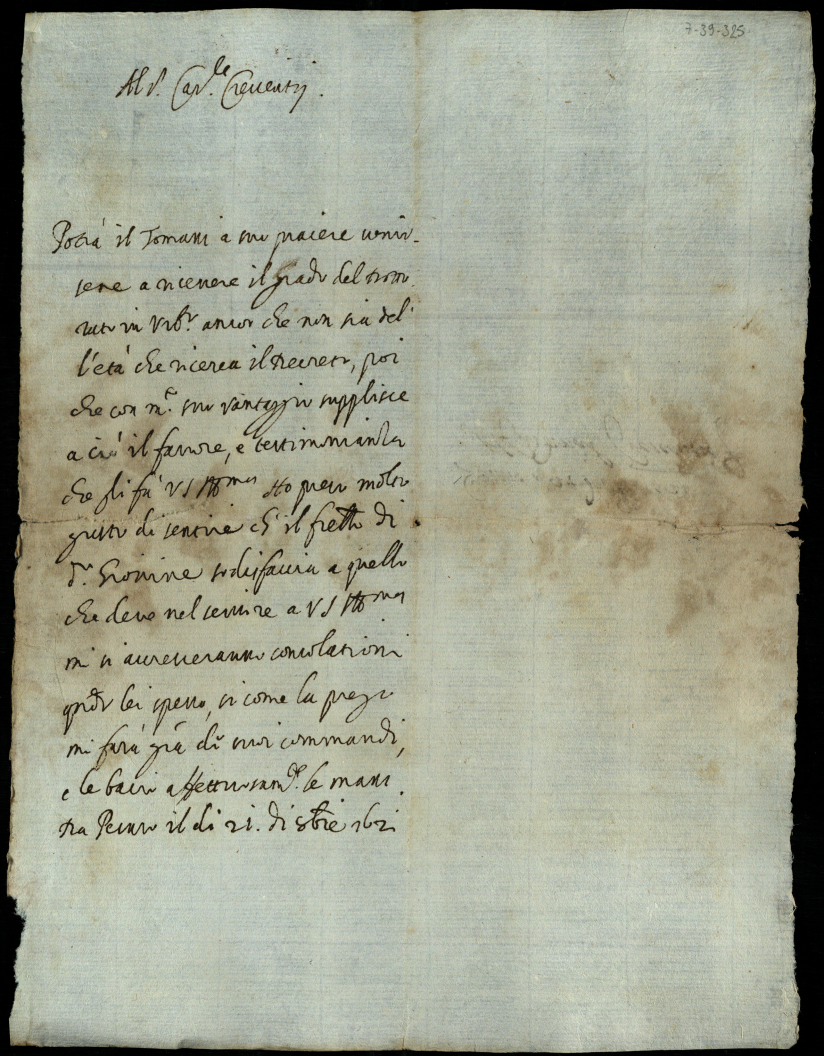 7-39-325
Al S.r Car.le Crescentij.
Potrà il Tomani a suo piacere venir-
sene a ricevere il grado del dotto-
rato in Urb.o ancor che non sia del-
l'età che ricerca il decreto, poi
che con m.o suo vantaggio supplisce
a ciò il favore, e testimonianza
che gli fà V S Ill.ma et io preso molto
gusto di sentire ch' il
d.o Gionine sodisfaccia a quello
che deve nel servire a V S Ill.ma
mi si accresceranno consolationi
qñdo lei spesso, si come la prego
mi farà grã dē suoi commandi,
e le bacio affettuosam.te le mani.
Da Pesaro il di 21. di 8bre 1621